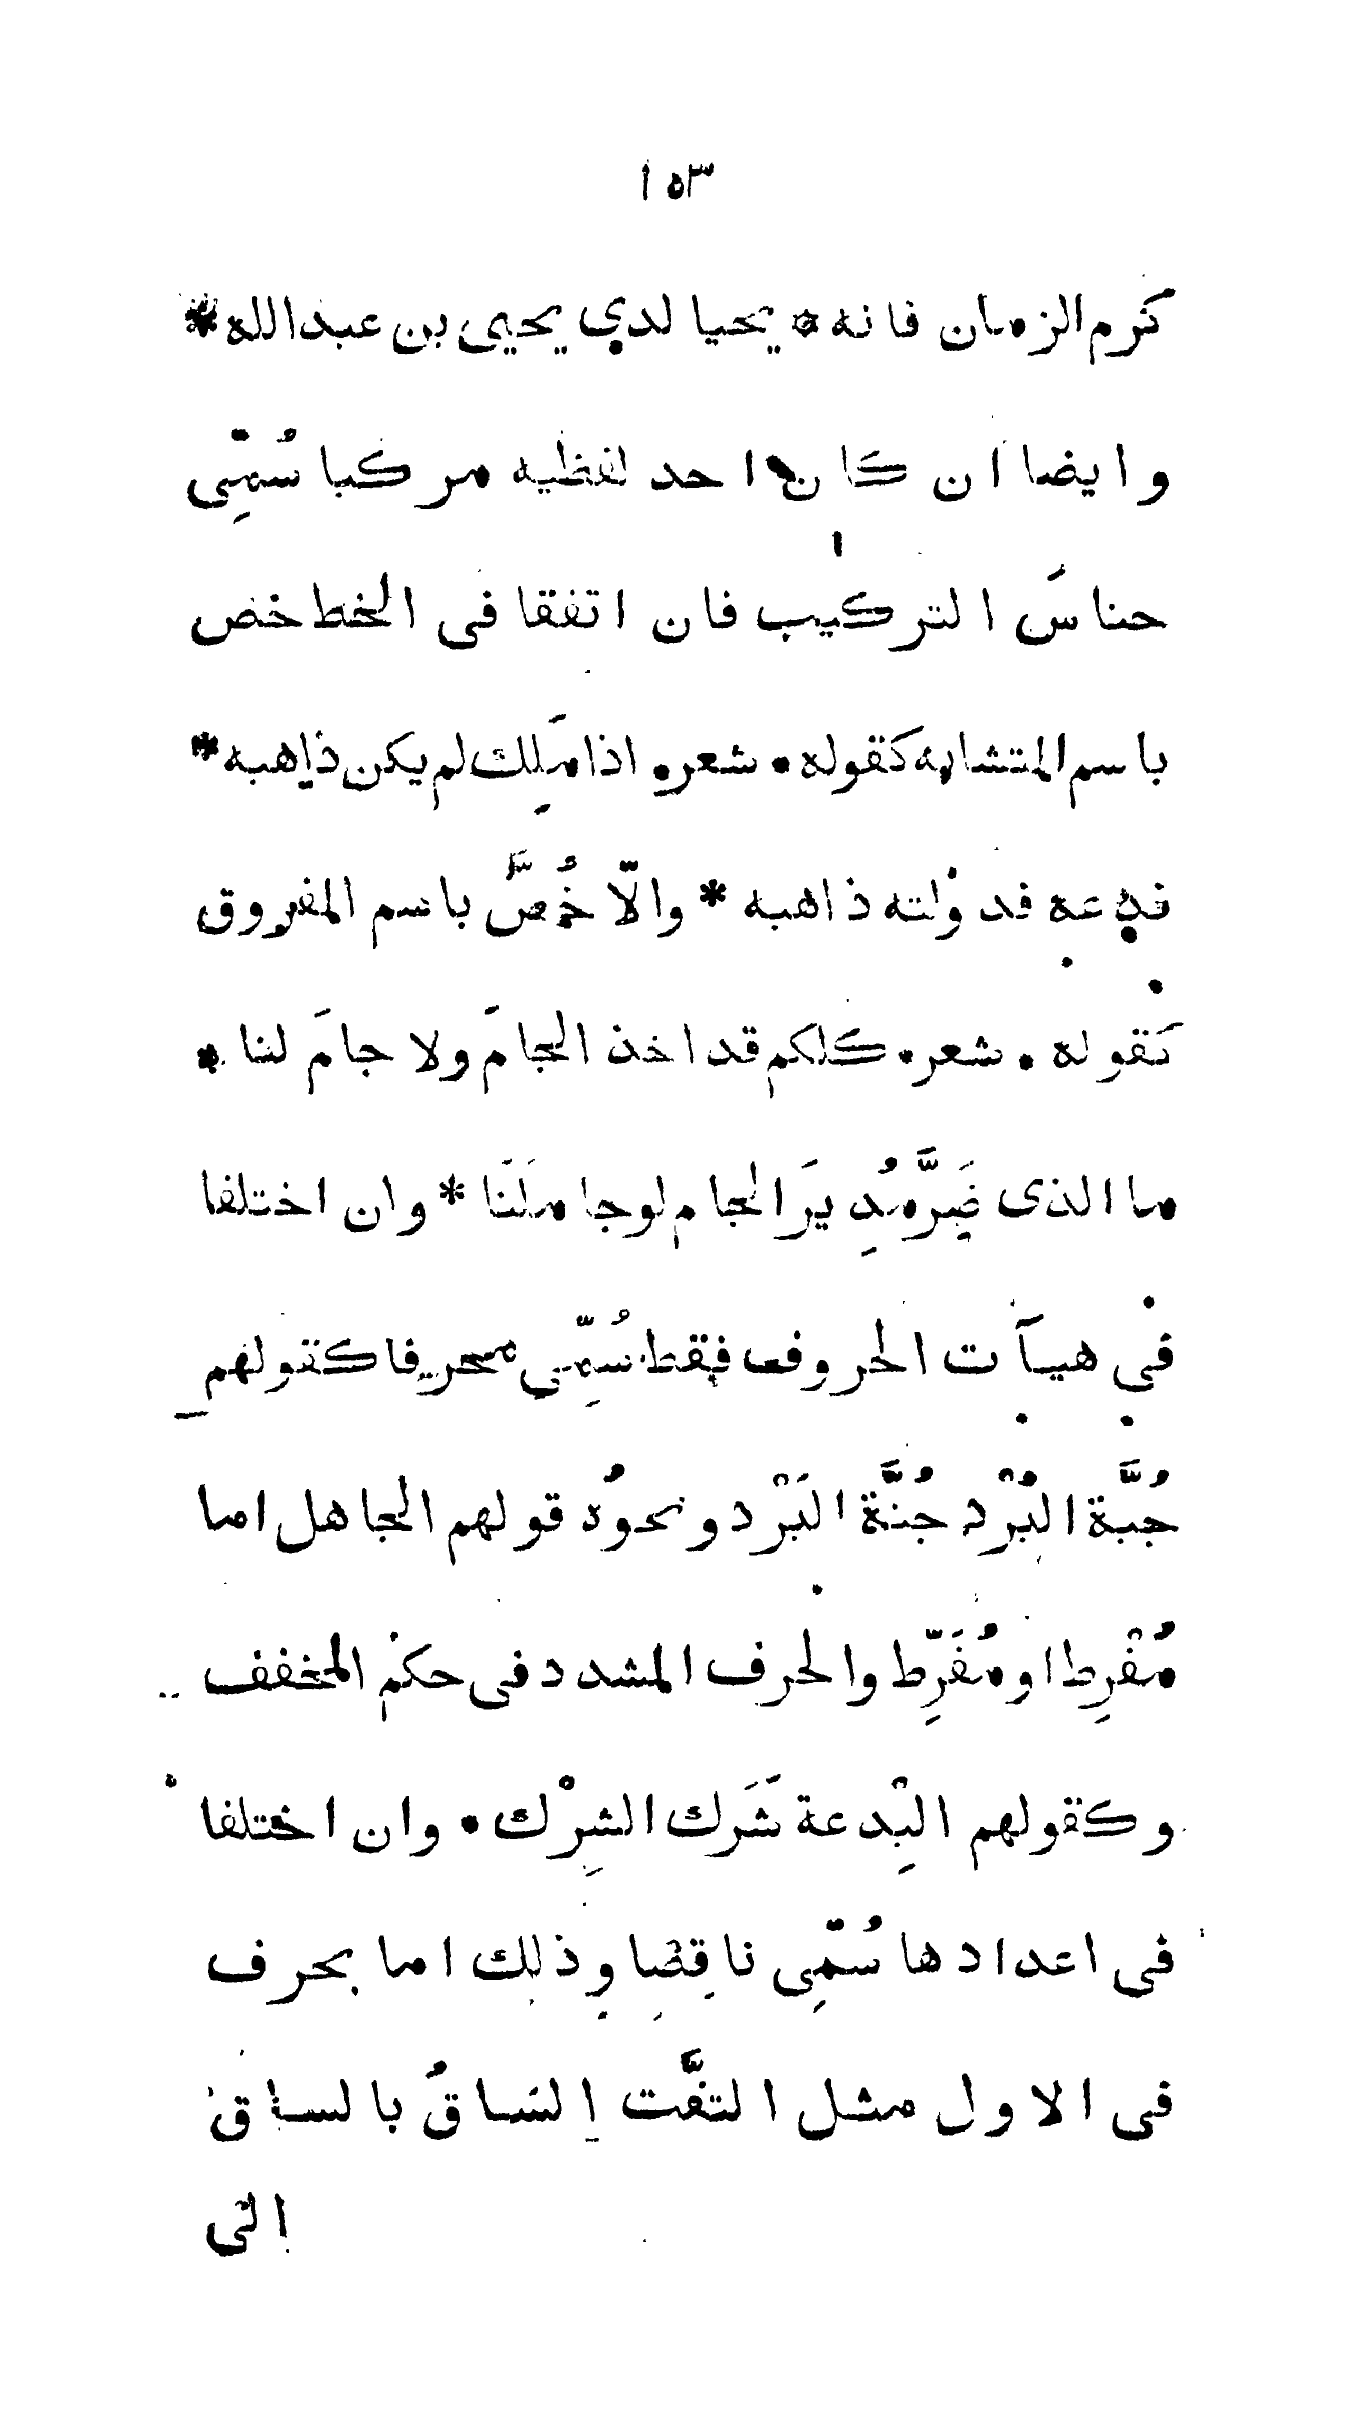 ١٥٣
كرم الزمان فانه * يحيا لدي يحيى بن عبد الله *
وايضا ان كان احد لفظيه مركبا سُمِّى
جناسَ التركيب فان اتفقا فى الخط خص
باسم المتشابه كقوله • شعر • اذا مَلِك لم يكن ذاهبه *
فدعه فدولته ذاهبه * والّا خُصَّ باسم المفروق
كقوله • شعر • كلكم قد اخذ الجامَ ولا جامَ لنا *
ما الذى ضَرَّ مُدِيرَ الجام لو جاملَنَا * وان اختلفا
فى هيآت الحروف فقط سُمِّى محرفا كقولهم
جُبَّة البُرْد جُنَّة البَرْد ونحوُه قولهم الجاهل اما
مُفْرِط او مُفَرِّط والحرف المشدد فى حكم المخفف
وكقولهم البِدعة شَرَك الشِرْك • وان اختلفا
فى اعدادها سُمِّى ناقِصًا وذلك اما بحرف
فى الاول مثل التفَّت السَاقُ بالساق
الى